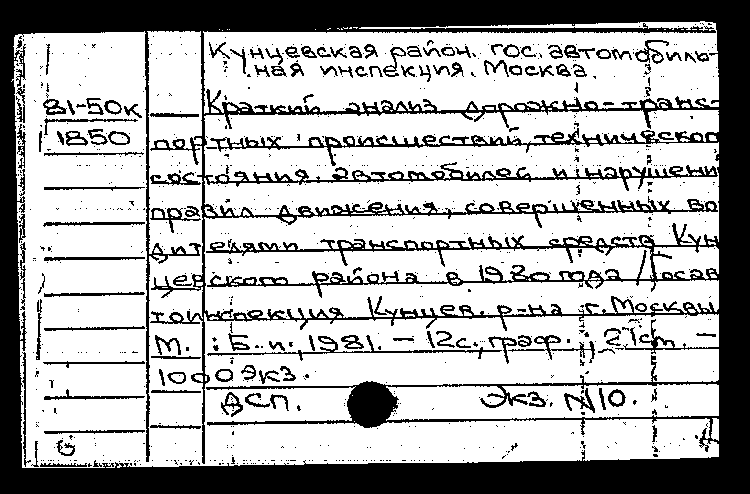 Кунцевская район. гос. автомобиль-
ная инспекция. Москва.
81-50к Краткий анализ дорожно-транс-
1850 портных происшествий, техническог
состояния автомобилей и нарушени
правил движения, совершенных во
дителями транспортных средств Кун
цевского района в 1980 года / Госав
тоинспекция Кунцев. р-на г. Москвы.
М. : Б. и., 1981. — 12с., граф. ; 27см. —
1000 экз.
ДСП. Экз. N10.